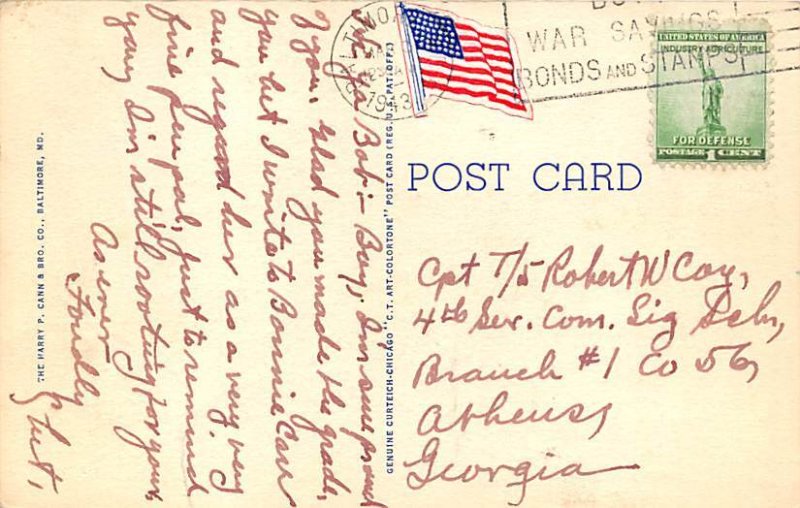 BALTIMORE
MAR
1943
BUY
WAR SAVINGS
BONDS AND STAMPS
UNITED STATES OF AMERICA
INDUSTRY AGRICULTURE
FOR DEFENSE
POSTAGE 1 CENT
POST CARD
Cpt T/5 Robert W Coy,
4th Ser. Com. Sig Schl,
Branch #1 Co 56,
Athens,
Georgia
Bob:- Boy, I'm sure proud
of you. Glad you made the grade,
you bet I write to Bonnie
and regard her as a very very
fine pen pal, just to remind
you, I'm still rooting for you,
As ever
Fondly
THE HARRY P. CANN & BRO. CO., BALTIMORE, MD.
GENUINE CURTEICH-CHICAGO "C.T. ART-COLORTONE" POST CARD (REG. U.S. PAT. OFF.)